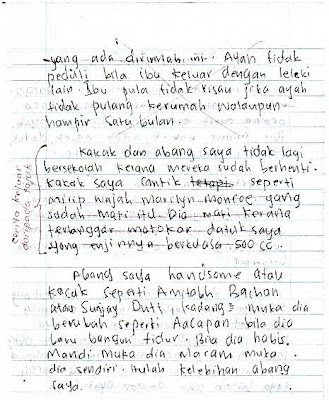 yang ada dirumah ini. Ayah tidak
peduli bila ibu keluar dengan leleki
lain. Ibu pula tidak risau jika ayah
tidak pulang kerumah walaupun
hampir satu bulan.
Kakak dan abang saya tidak lagi
bersekolah kerana mereka sudah berhenti.
Kakak saya cantik tetapi seperti
mirip wajah marilyn monroe yang
sudah mati itu. Dia mati kerana
terlanggar motokar datuk saya
yang enjinnya berkuasa 500 CC.
Abang saya handsome atau
kacak seperti Amitabh Bachan
atau Sunjay Dutt, kadang2 muka dia
berubah seperti Aacapan bila dia
baru bangun tidur. Bila dia habis
Mandi muka dia macam muka
dia sendiri. Itulah kelebihan abang
saya.